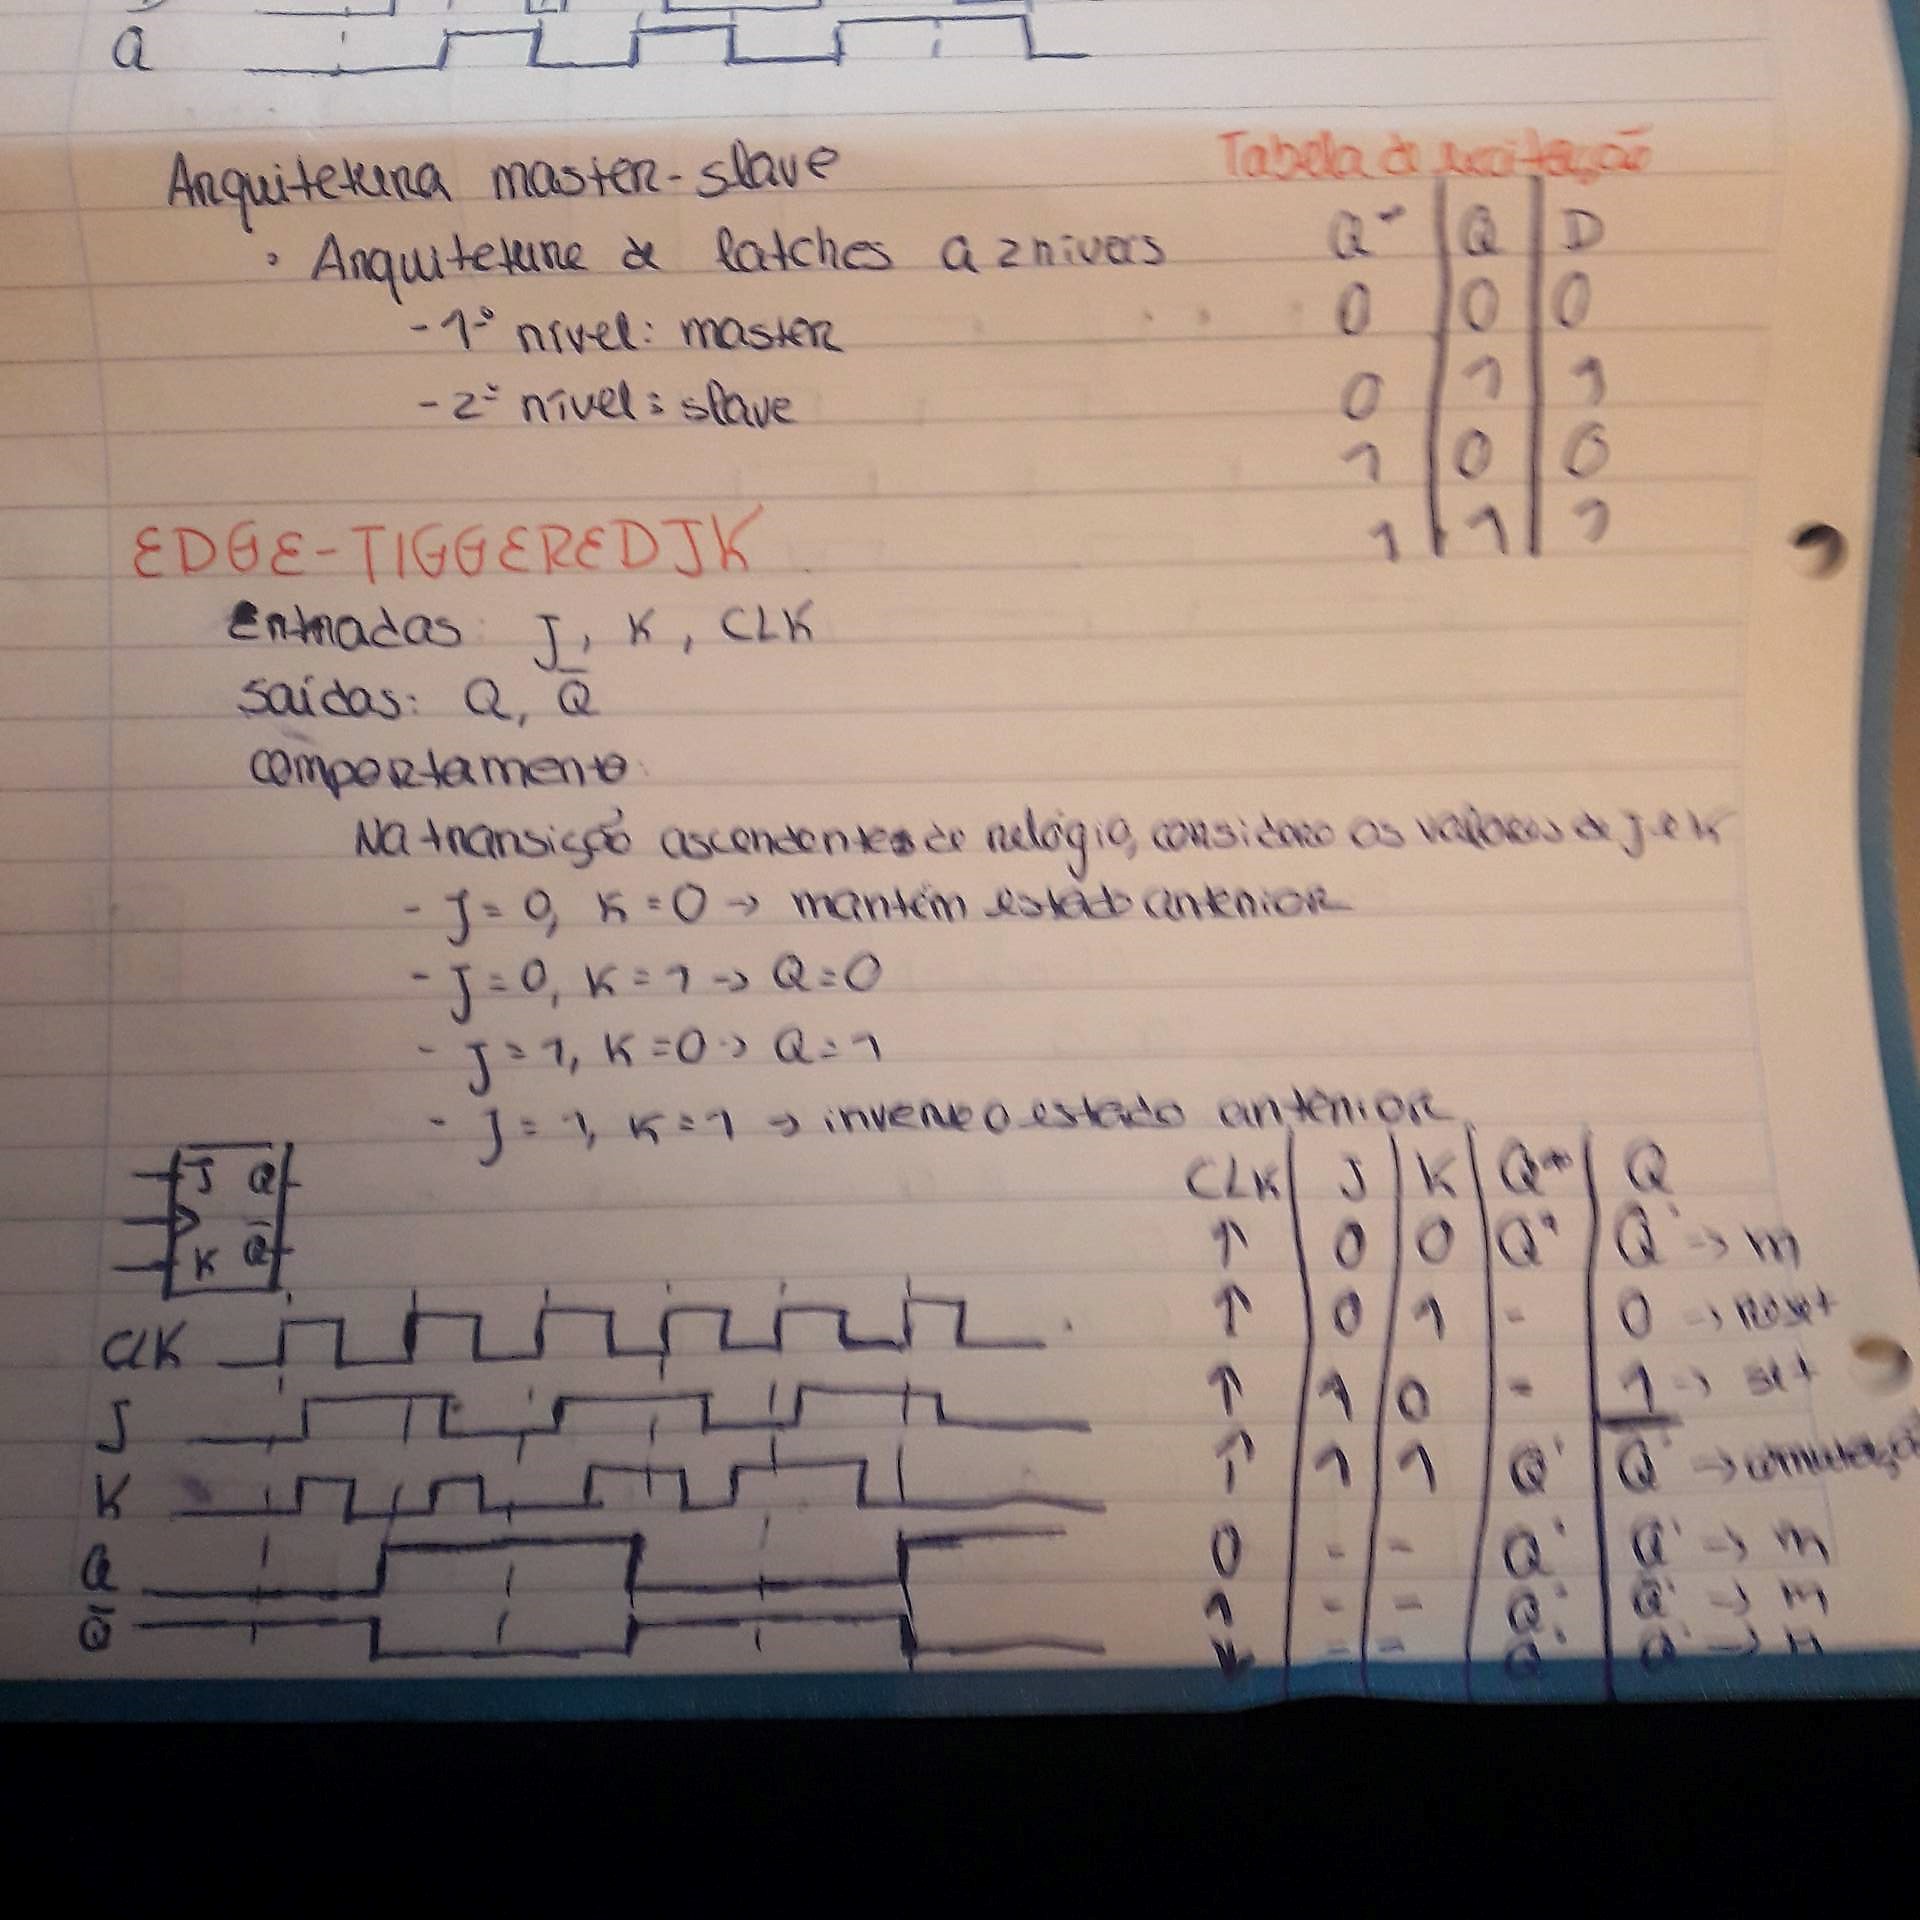 Q
Arquitetura master-slave
Tabela de excitação
• Arquitetura de latches a 2 níveis
Q* | Q | D
- 1º nível: master
0 | 0 | 0
- 2º nível: slave
0 | 1 | 1
1 | 0 | 0
1 | 1 | 1
EDGE-TIGGERED JK
Entradas: J, K, CLK
Saídas: Q, Q̅
comportamento:
Na transição ascendentes do relógio, considera os valores de J e K
- J = 0, K = 0 → mantém estado anterior
- J = 0, K = 1 → Q = 0
- J = 1, K = 0 → Q = 1
- J = 1, K = 1 → inverte o estado anterior
J Q
K Q̅
CLK
J
K
Q
Q̅
CLK | J | K | Q* | Q
↑ | 0 | 0 | Q' | Q' → m
↑ | 0 | 1 | - | 0 → reset
↑ | 1 | 0 | - | 1 → set
↑ | 1 | 1 | Q' | Q̅' → comutaçã
0 | - | - | Q' | Q' → m
1 | - | - | Q' | Q' → m
↓ | - | - | Q' | Q' → m